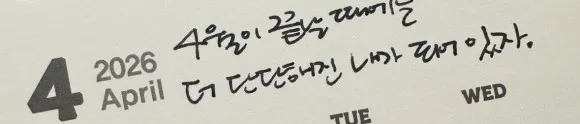 4 2026 April
4월이 끝났을 때에는
더 단단해진 내가 되어 있자.
TUE WED